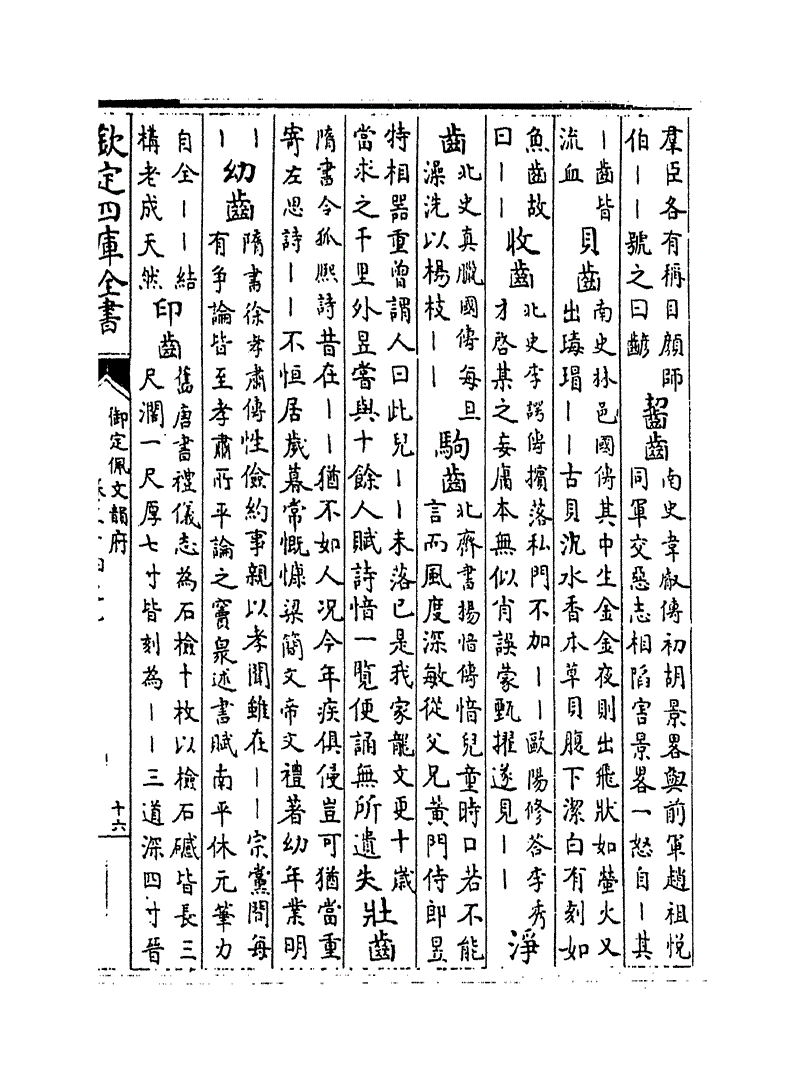 羣臣各有稱目顔師
伯丨丨號之曰齴
齧齒
南史韋叡傳初胡景畧與前軍趙祖悅
同軍交惡志相陷害景畧一怒自丨其
丨齒皆
流血
貝齒
南史林邑國傳其中生金金夜則出飛狀如螢火又
出瑇瑁丨丨古貝沈水香本草貝腹下潔白有刻如
魚齒故
曰丨丨
收齒
北史李諤傳擯落私門不加丨丨歐陽修答李秀
才啓某之妄庸本無似肖誤蒙甄擢遂見丨丨
淨
齒
北史真臘國傳每旦
澡洗以楊枝丨丨
駒齒
北齊書揚愔傳愔兒童時口若不能
言而風度深敏從父兄黃門侍郎昱
特相器重曾謂人曰此兒丨丨未落已是我家龍文更十歲
當求之千里外昱嘗與十餘人賦詩愔一覽便誦無所遺失
壯齒
隋書令狐熙詩昔在丨丨猶不如人况今年疾俱侵豈可猶當重
寄左思詩丨丨不恒居歲暮常慨慷梁簡文帝文禮著幼年業明
丨
丨
幼齒
隋書徐孝肅傳性儉約事親以孝聞雖在丨丨宗黨間每
有争論皆至孝肅所平論之竇臮述書賦南平休元筆力
自全丨丨結
構老成天然
印齒
舊唐書禮儀志為石檢十枚以檢石礠皆長三
尺濶一尺厚七寸皆刻為丨丨三道深四寸晉
欽定四庫全書
御定佩文韻府
十六